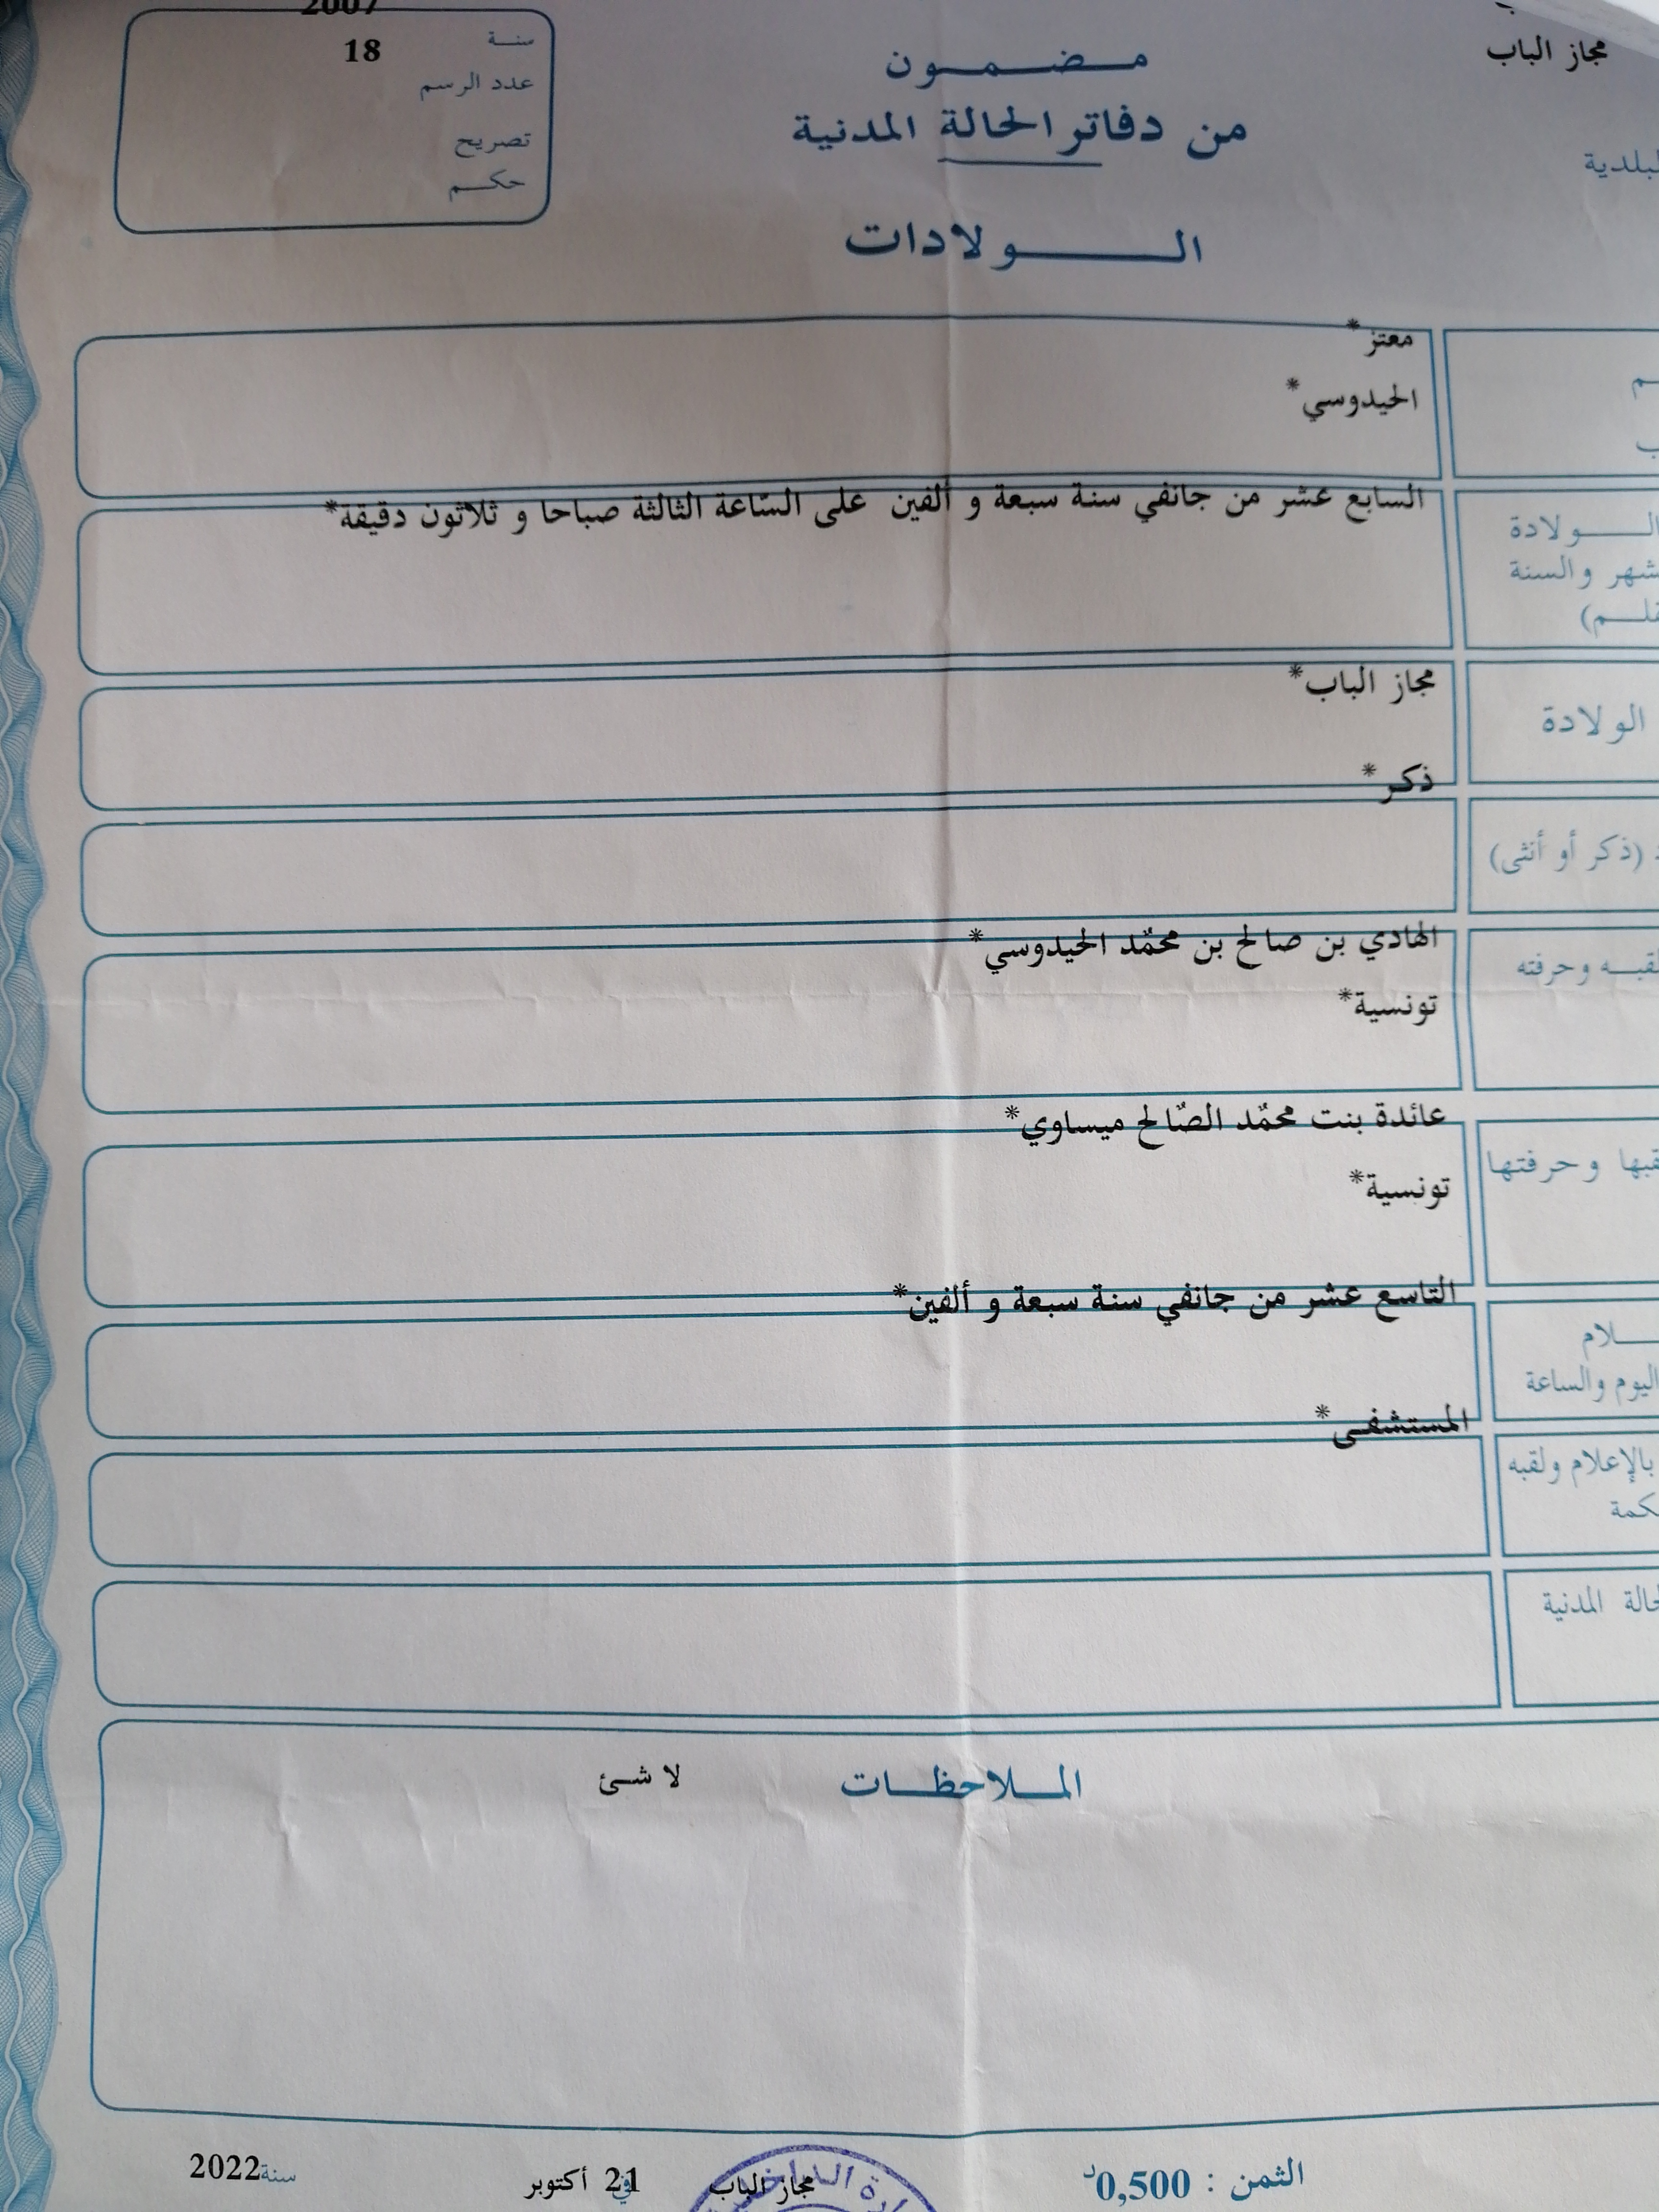 2007
سنة
18
عدد الرسم
تصريح
حكم
مضمون
من دفاتر الحالة المدنية
الولادات
مجاز الباب
معتز*
الحيدوسي*
السابع عشر من جانفي سنة سبعة و ألفين على السّاعة الثالثة صباحا و ثلاثون دقيقة*
الولادة
والسنة
مجاز الباب*
الولادة
ذكر*
(ذكر أو أنثى)
الهادي بن صالح بن محمّد الحيدوسي*
وحرفته
تونسية*
عائدة بنت محمّد الصّالح ميساوي*
وحرفتها
تونسية*
التاسع عشر من جانفي سنة سبعة و ألفين*
اليوم والساعة
المستشفى*
بالإعلام ولقبه
المدنية
الملاحظات
لا شئ
الثمن : 0,500د
مجاز الباب
في 21 أكتوبر
سنة 2022